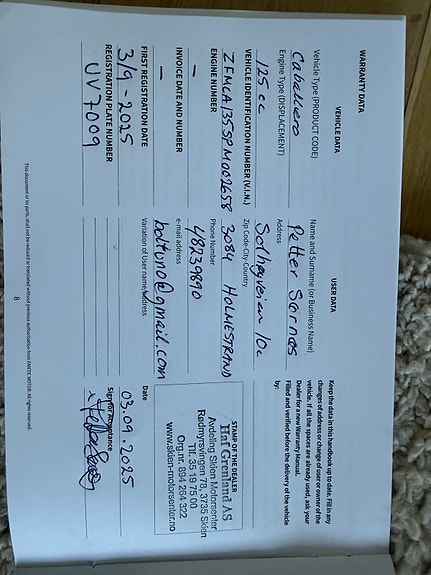 WARRANTY DATA
VEHICLE DATA
Vehicle Type (PRODUCT CODE)
Caballero
Engine Type (DISPLACEMENT)
125 cc
VEHICLE IDENTIFICATION NUMBER (V.I.N.)
ZFMCA135SPM002658
ENGINE NUMBER
—
INVOICE DATE AND NUMBER
—
FIRST REGISTRATION DATE
3/9-2025
REGISTRATION PLATE NUMBER
UV7009
USER DATA
Name and Surname (or Business Name)
Petter Sornes
Address
Solhøyveien 10c
Zip Code-City Country
3084 HOLMESTRAND
Phone Number
48239890
e-mail address
boltuno@gmail.com
Variation of User name/address
Keep the data in this handbook up to date. Fill in any
changes of address or change of user or owner of the
vehicle. If all the spaces are already used, ask your
Dealer for a new Warranty Manual.
Filled and verified before the delivery of the vehicle
by:
STAMP OF THE DEALER
Haf Grenland AS
Avdeling Skien Motorsenter
Rødmyrsvingen 78, 3735 Skien
Tlf. 35 19 75 00
Org.nr. 894 264 322
www.skien-motorsenter.no
Date
03.09.2025
Sign for Acceptance
This document or its parts, shall not be reduced or translated without previous authorization from FANTIC MOTOR. All rights reserved.
8